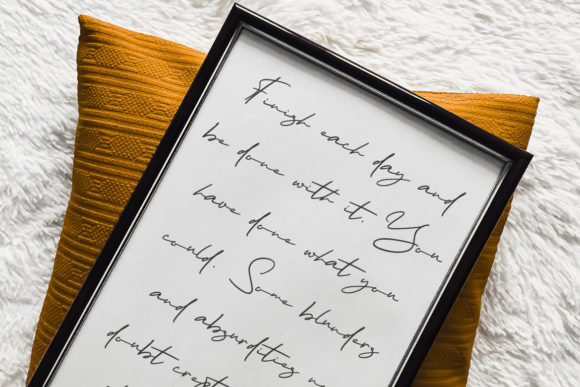 Finish each day and
be done with it. You
have done what you
could. Some blunders
and absurdities
doubt crept